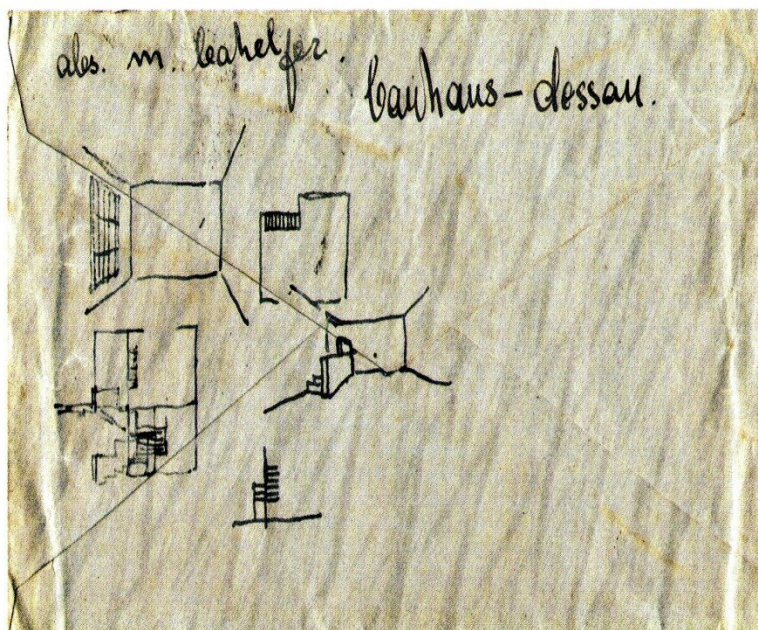 abs. m. bahelfer.
bauhaus – dessau.